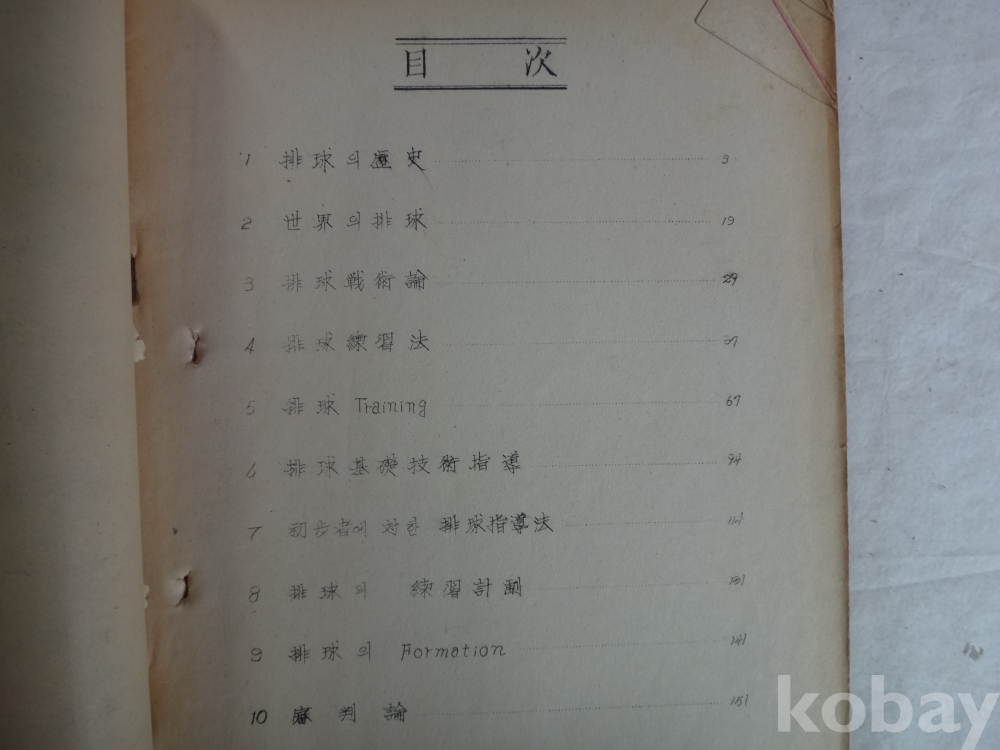 目 次
1 排球의 歷史 3
2 世界의 排球 19
3 排球戰術論 29
4 排球練習法 37
5 排球 Training 67
6 排球基礎技術指導 94
7 初步者에 対한 排球指導法
8 排球의 練習計劃 131
9 排球의 Formation 141
10 審判論 151
kobay